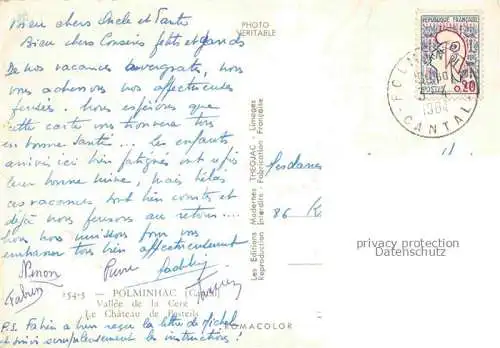 Bien chers Oncle et Tante
Bien chers Cousins petits et grands
De nos vacances auvergnates, nous
vous adressons nos affectueuses
pensées. Nous espérons que
cette carte vous trouvera tous
en bonne santé... Les enfants
arrivés ici bien fatigués ont repris
leur bonne mine, mais hélas
ces vacances sont bien courtes et
déjà nous pensons au retour...
Nous nous unissons pour vous
embrasser tous bien affectueusement
Ninon Pierre
254-3 — POLMINHAC (Cantal)
Vallée de la Cère
Le Château de Pesteils
P.S. Fabien a bien reçu la lettre de Michel
et suivi scrupuleusement les instructions!
PHOTO
VÉRITABLE
Les Editions Modernes THEOJAC - Limoges
Reproduction Interdite - Fabrication Française
ROMACOLOR
REPUBLIQUE FRANÇAISE
POSTES 0,20
CANTAL
Mesdames
86
privacy protection
Datenschutz